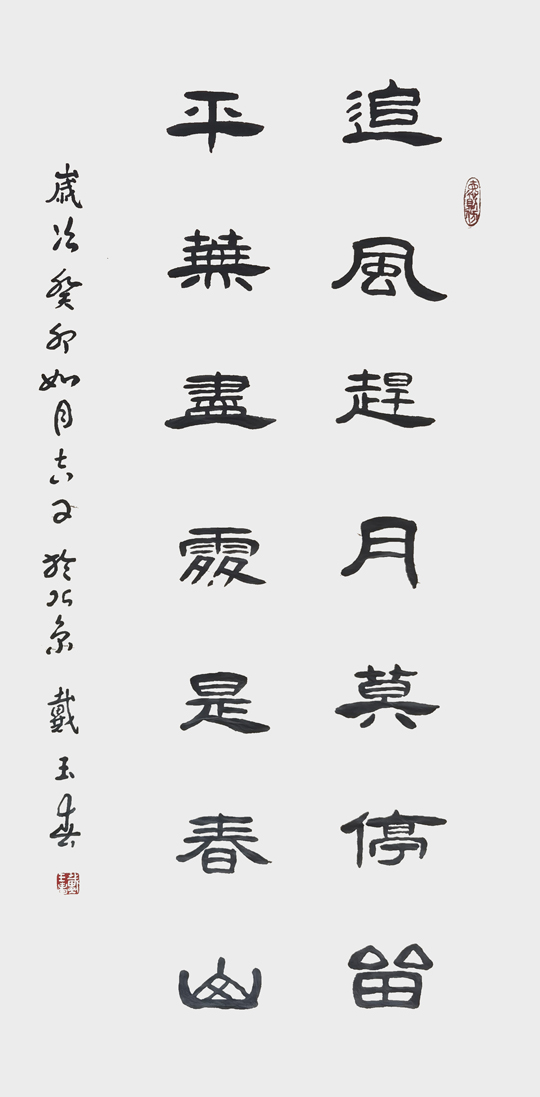 追風趕月莫停留
平蕪盡處是春山
歲次癸卯如月吉日於北京 戴玉春